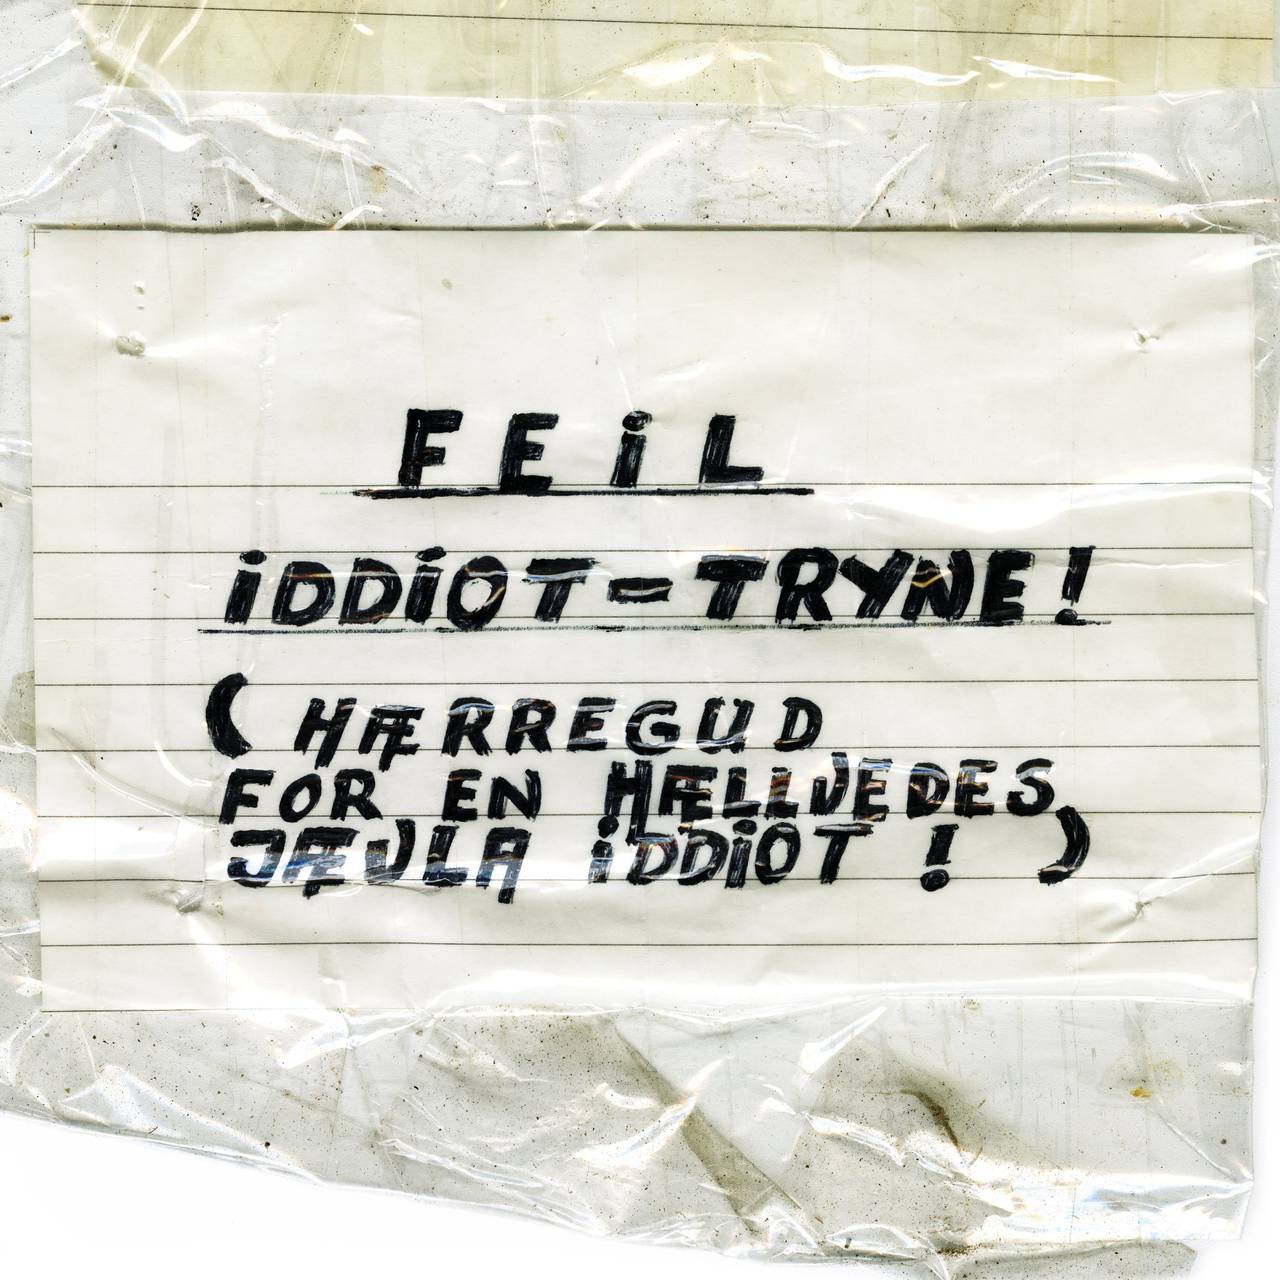 FEiL
iDDiOT-TRYNE!
( HÆRREGUD
FOR EN HÆLLVEDES
JÆVLA iDDiOT ! )